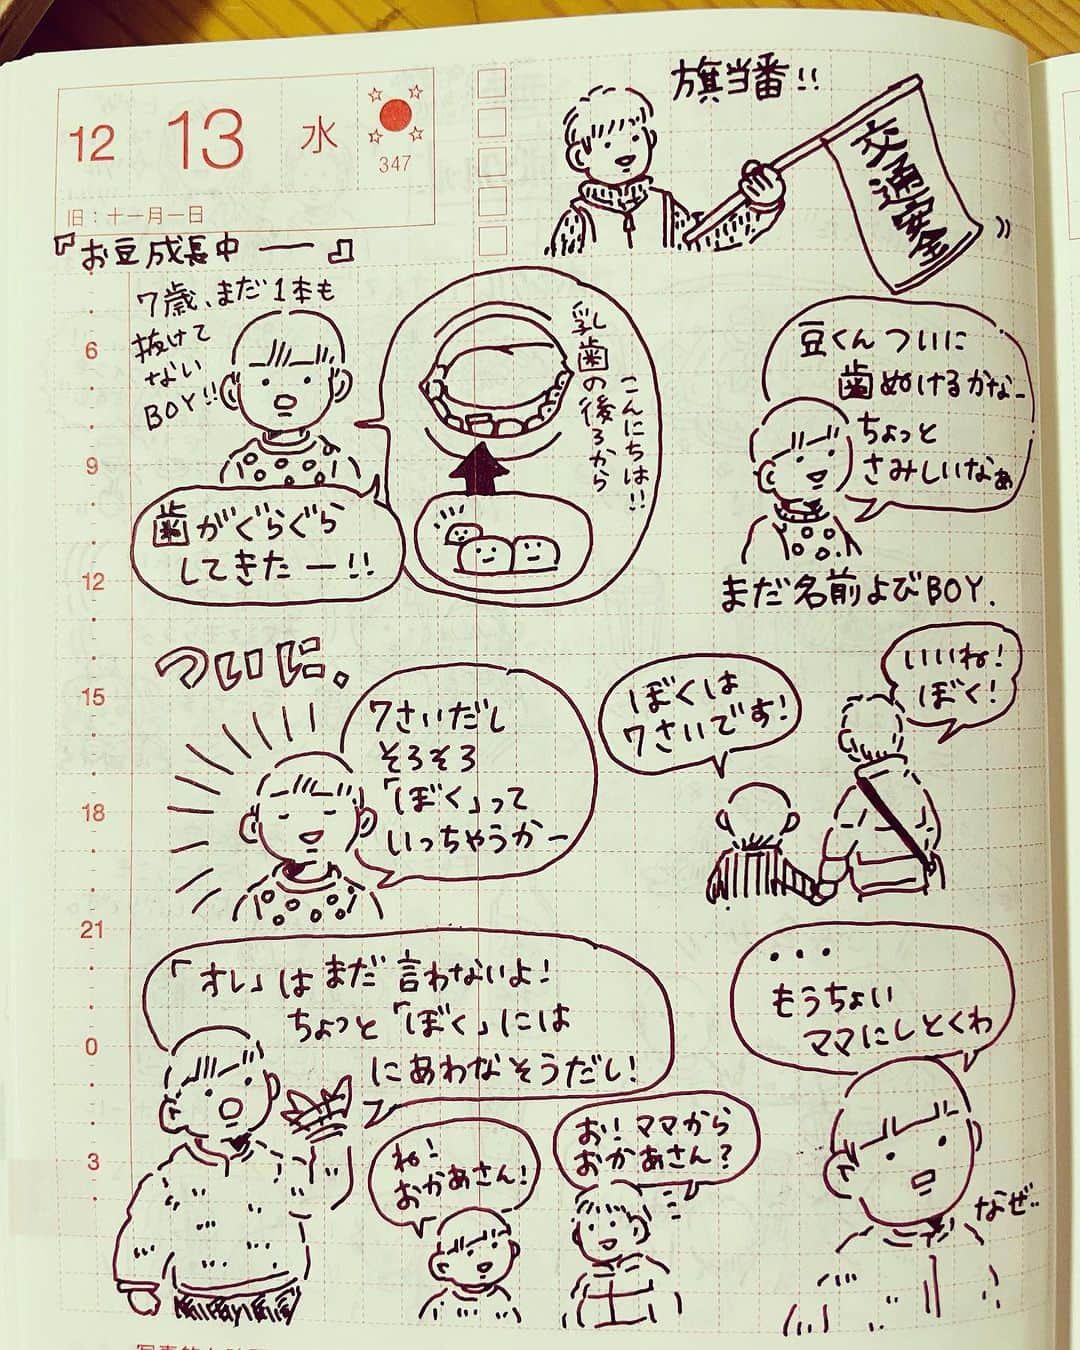 12 13 水
347
旧：十一月一日
旗当番!!
交通安全
『お豆成長中ー』
7歳、まだ1本も
抜けて
ない
BOY!!
乳歯の後ろから
こんにちは!!
歯がぐらぐら
してきたー!!
豆くんついに
歯ぬけるかなー
ちょっと
さみしいなぁ
まだ名前よびBOY.
6
9
12
15
18
21
0
3
ついに。
7さいだし
そろそろ
「ぼく」って
いっちゃうかー
ぼくは
7さいです!
いいね!
ぼく!
「オレ」はまだ言わないよ!
ちょっと「ぼく」には
にあわなそうだし!
ね!
おかあさん!
お!ママから
おかあさん?
・・・
もうちょい
ママにしとくわ
なぜ..